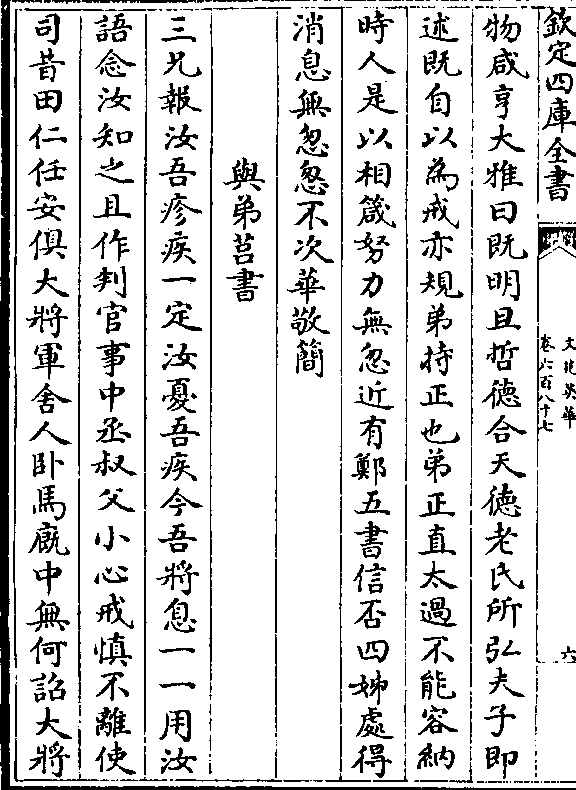 欽定四庫全書
文苑英華
卷六百八十七
六
物咸亨大雅曰既明且哲徳合天徳老氏所弘夫子即
述既自以為戒亦規弟持正也弟正直太過不能容納
時人是以相箴努力無忽近有鄭五書信否四姊處得
消息無怱怱不次華敬簡
與弟莒書
三兄報汝吾疹疾一定汝憂吾疾今吾將息一一用汝
語念汝知之且作判官事中丞叔父小心戒慎不離使
司昔田仁任安俱大將軍舍人卧馬廐中無何詔大將